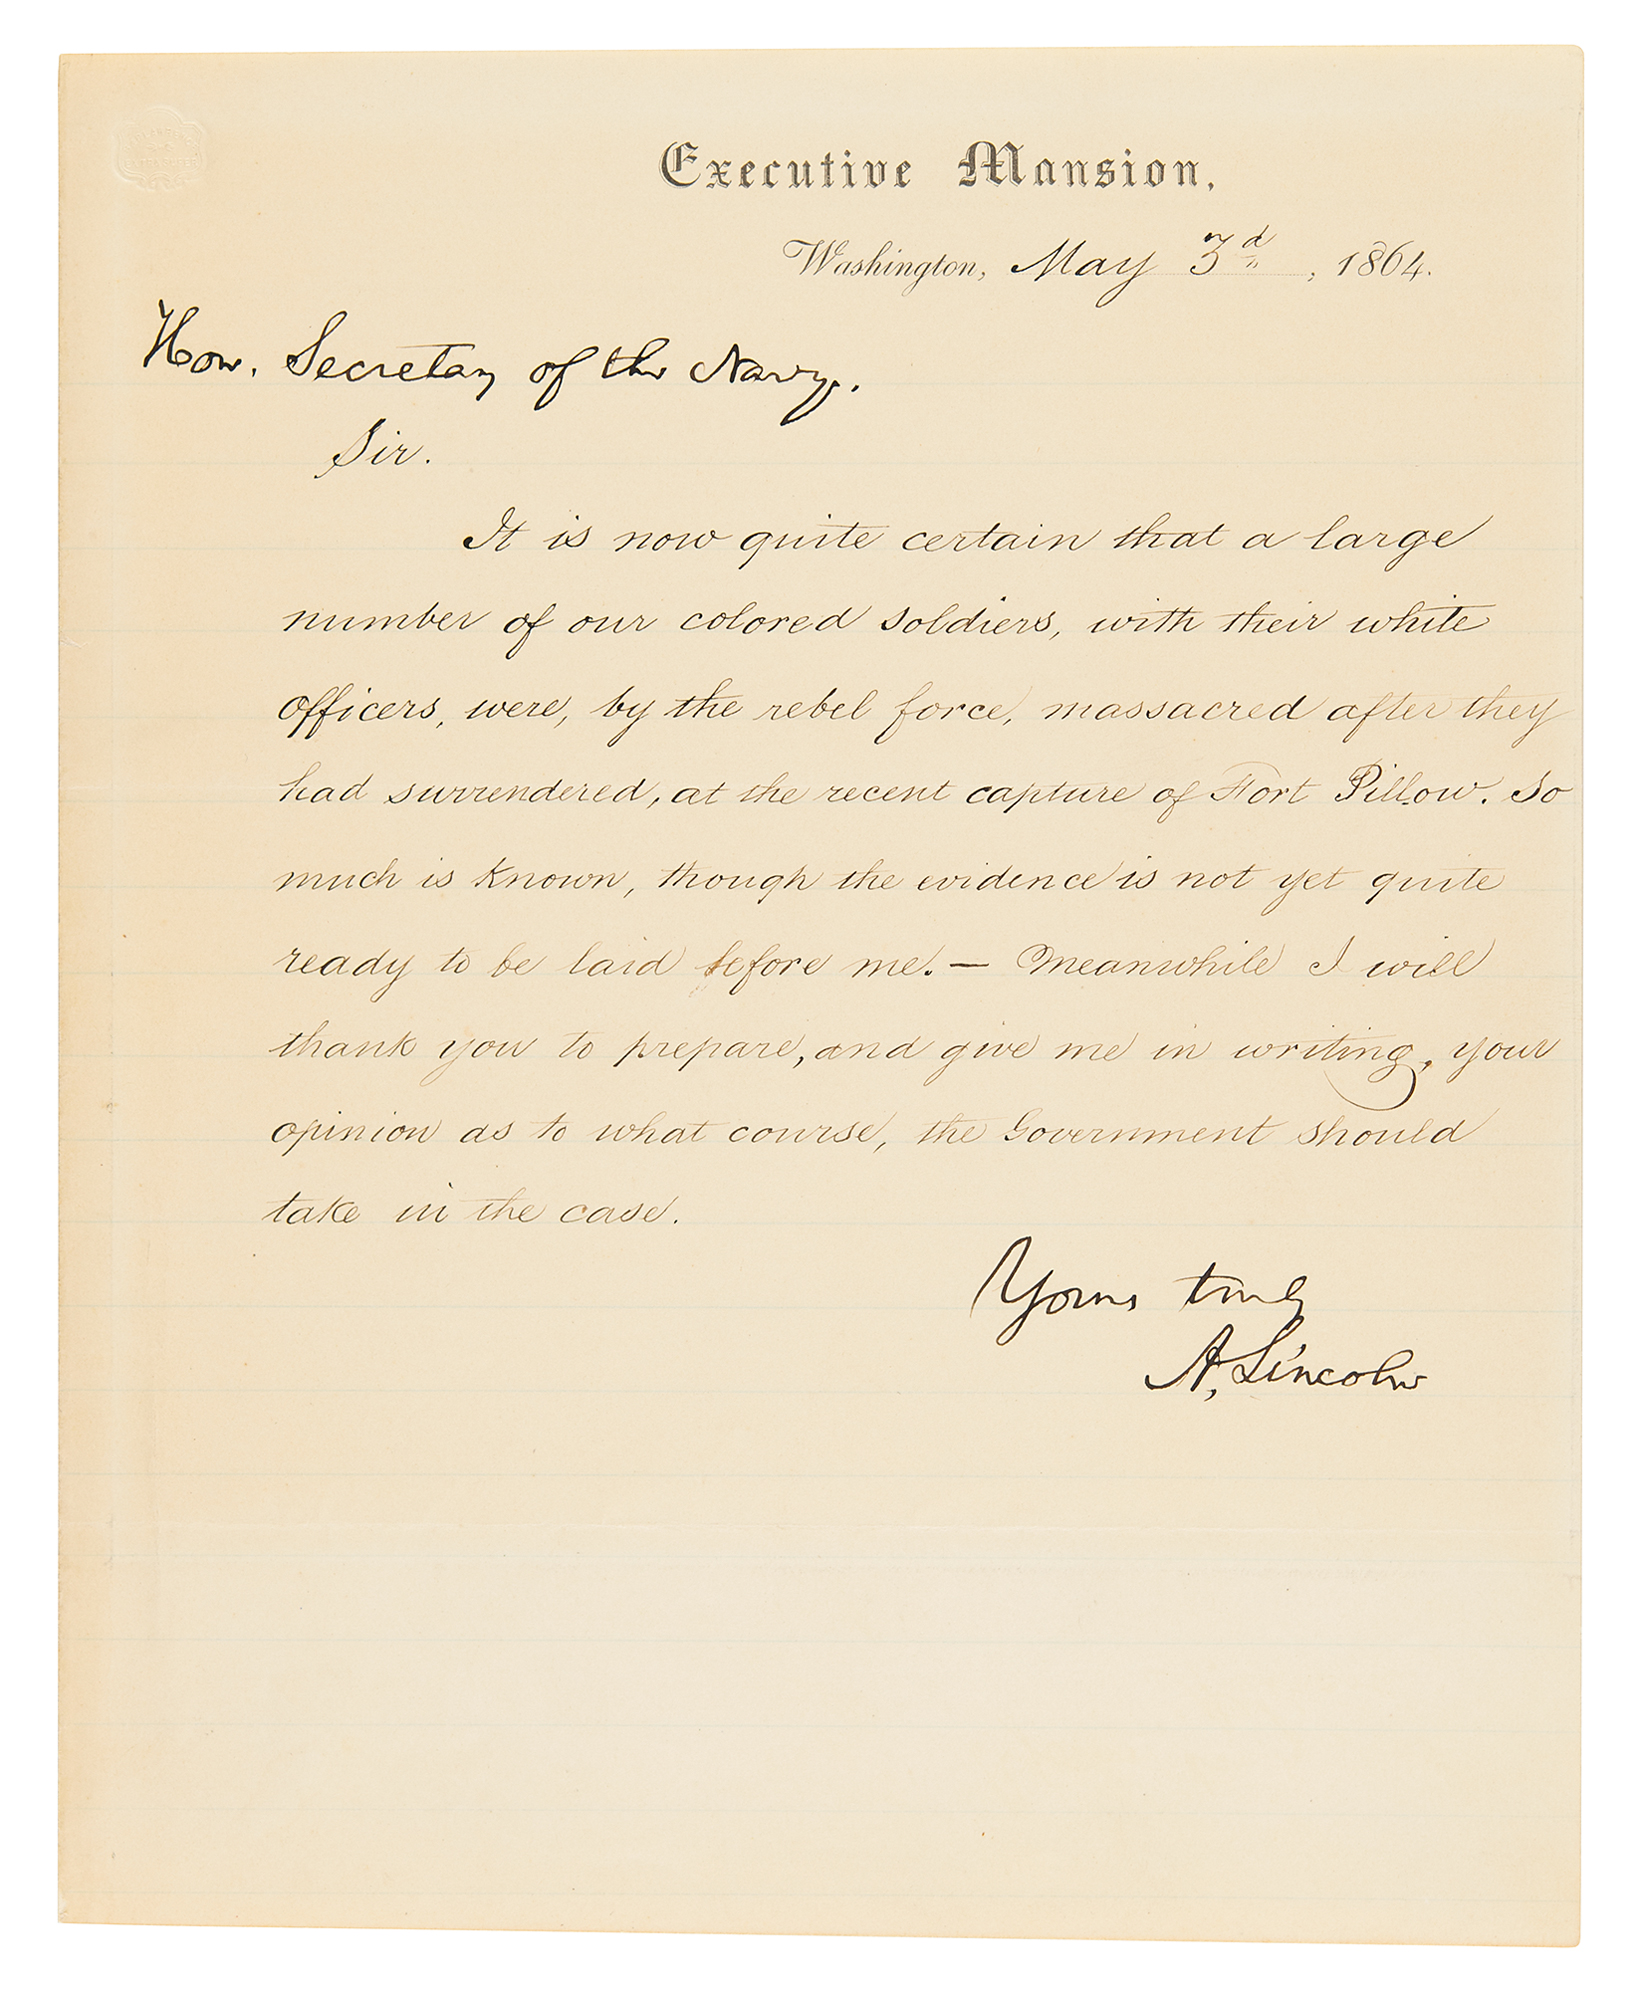 Executive Mansion,
Washington, May 3d, 1864.
Hon. Secretary of the Navy.
Sir.
It is now quite certain that a large
number of our colored soldiers, with their white
officers, were, by the rebel force, massacred after they
had surrendered, at the recent capture of Fort Pillow. So
much is known, though the evidence is not yet quite
ready to be laid before me. — Meanwhile I will
thank you to prepare, and give me in writing, your
opinion as to what course, the Government should
take in the case.
Yours truly
A. Lincoln